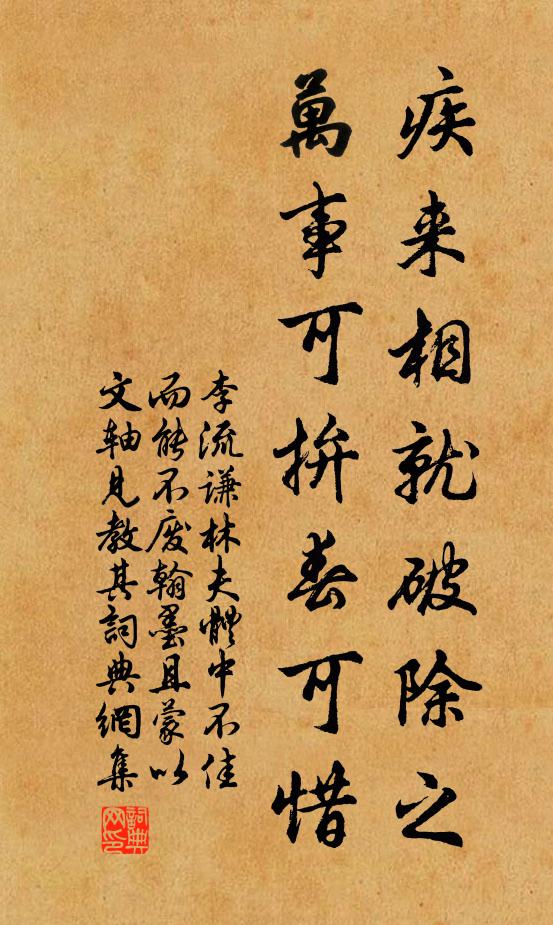 疾来相就破除之
萬事可拚春可惜
李流谦林夫體中不佳
而能不废翰墨且蒙以
文轴見教其詞典網集
詞典
网印